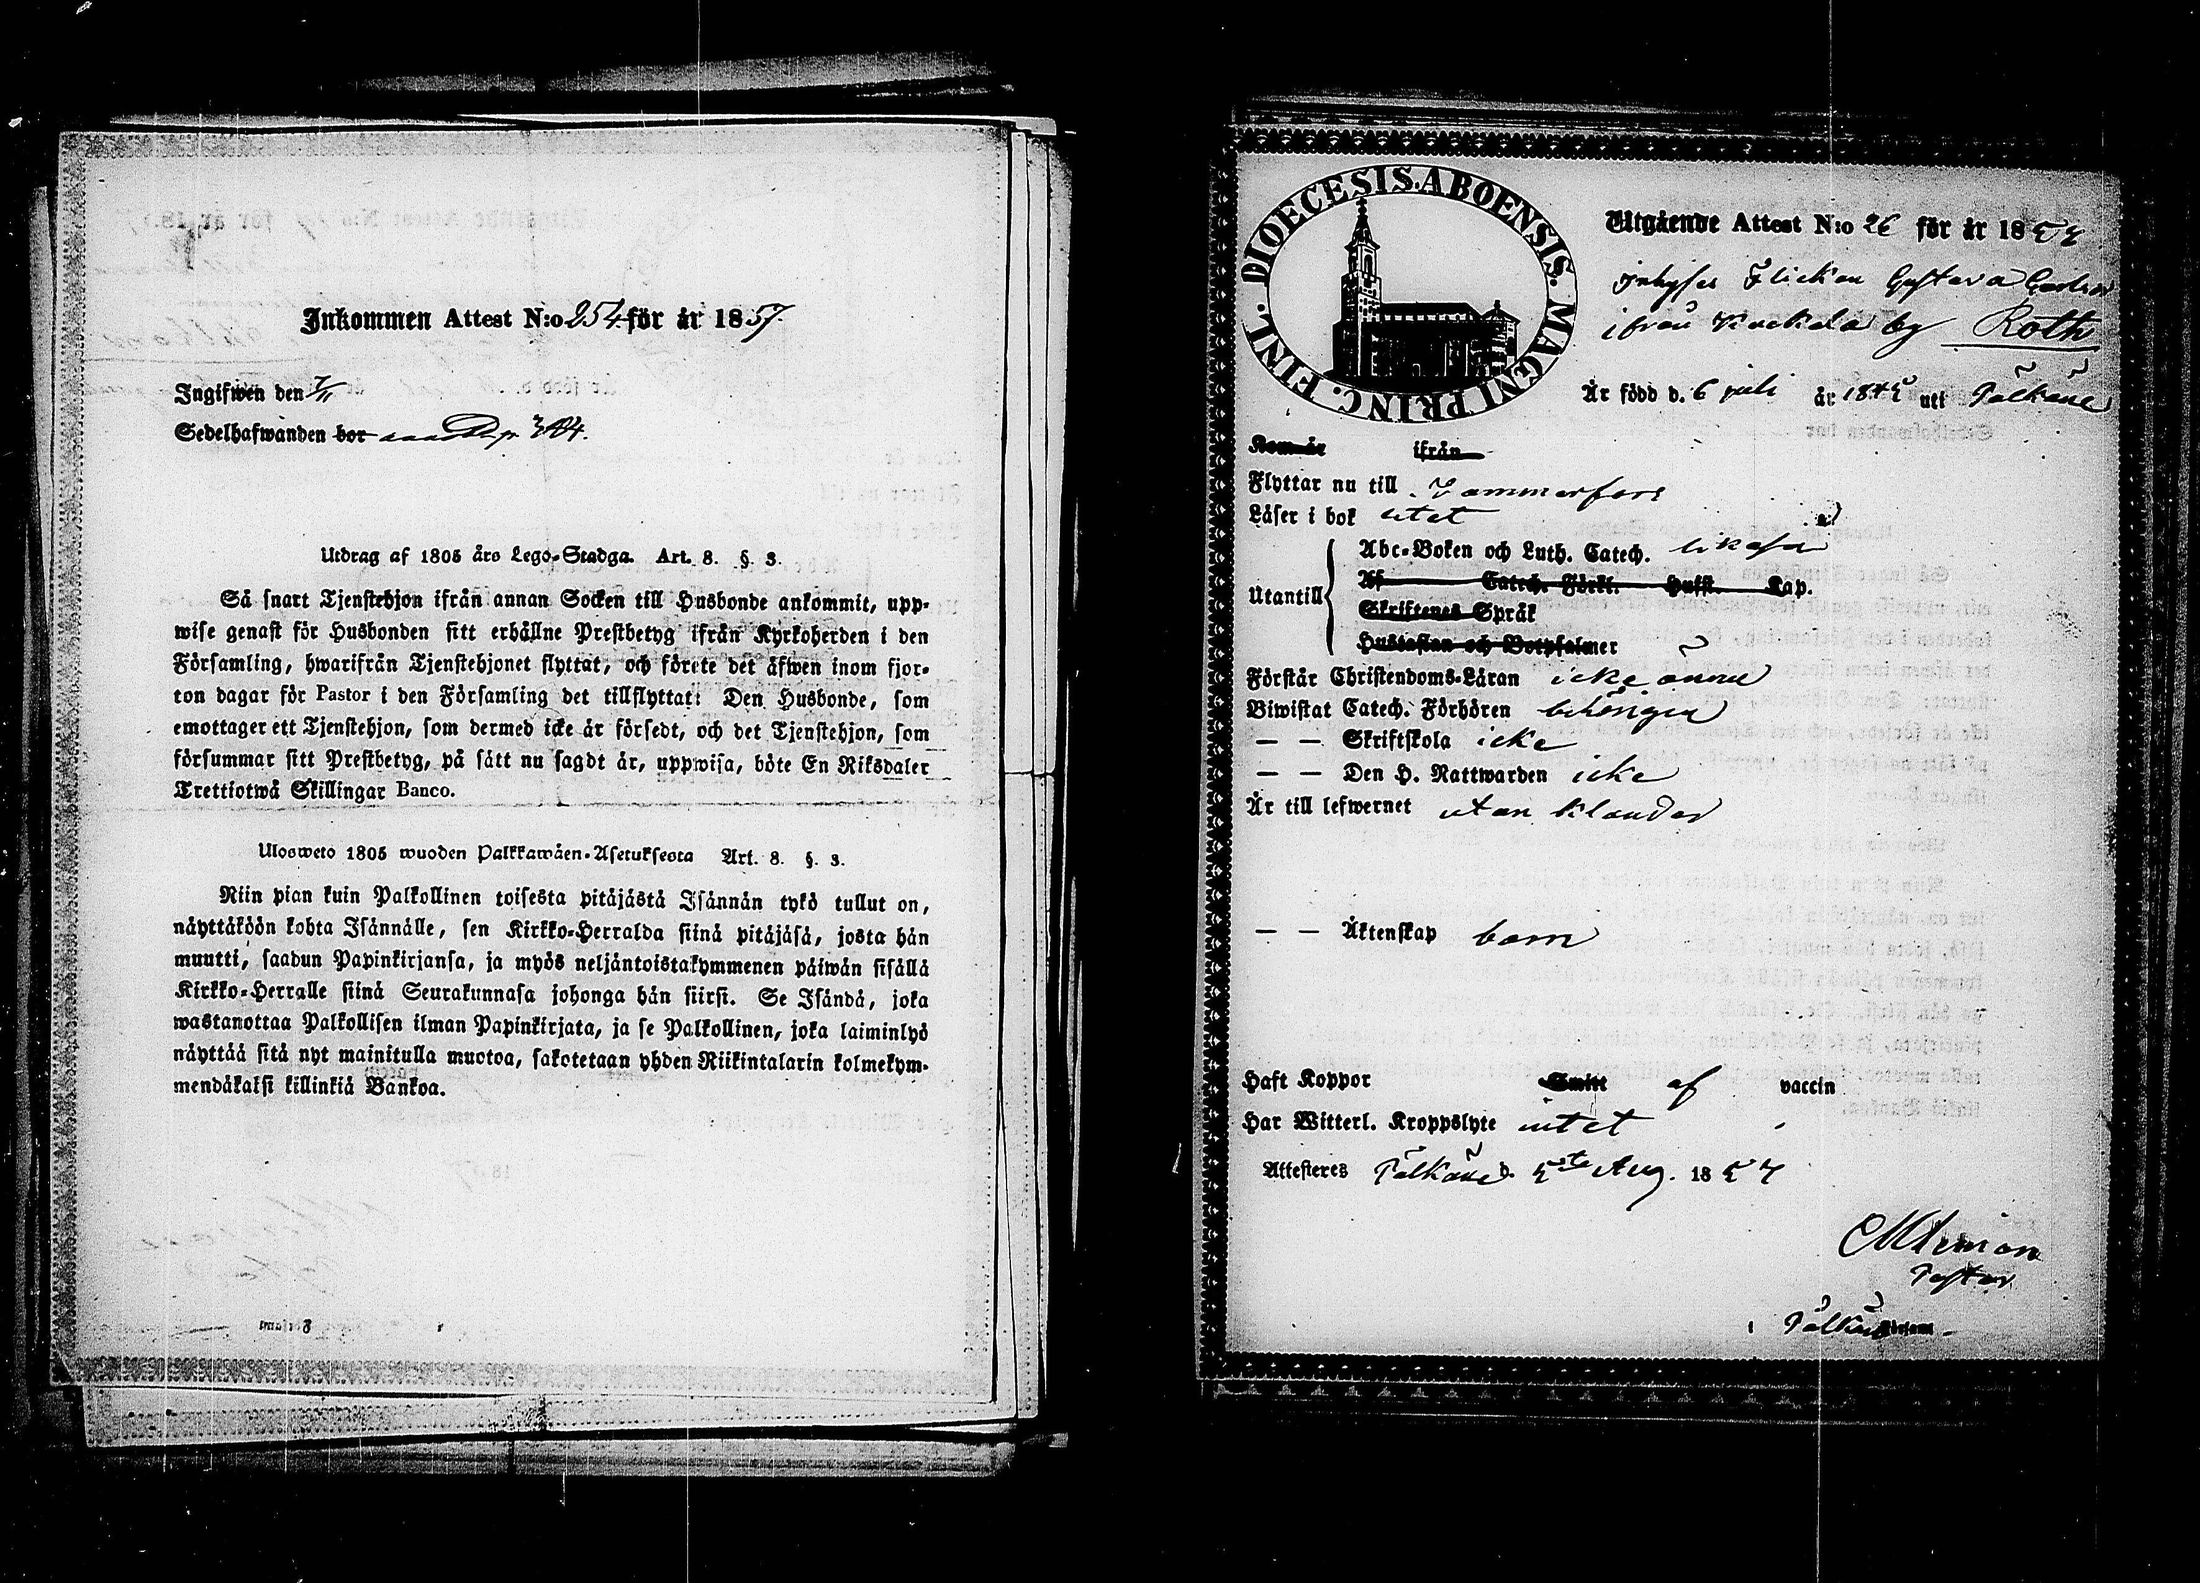 Inkommen Attest N:o 254 för år 1857.
Ingifwen den 7/11
Sedelhafwanden bor
Utdrag af 1805 års Lego-Stadga. Art. 8. §. 3.
Så snart Tjenstehjon ifrån annan Socken till Husbonde ankommit, upp-
wise genast för Husbonden sitt erhållne Prestbetyg ifrån Kyrkoherden i den
Församling, hwarifrån Tjenstehjonet flyttat, och förete det äfwen inom fjor-
ton dagar för Pastor i den Församling det tillflyttat: Den Husbonde, som
emottager ett Tjenstehjon, som dermed icke är försedt, och det Tjenstehjon, som
försummar sitt Prestbetyg, på sätt nu sagdt är, uppwisa, böte En Riksdaler
Trettiotwå Skillingar Banco.
Ulosweto 1805 wuoden Palkkawäen-Asetuksesta Art. 8. §. 3.
Niin pian kuin Palkollinen toisesta pitäjästä Isännän tykö tullut on,
näyttäköön kohta Isännälle, sen Kirkko-Herralda siinä pitäjäsä, josta hän
muutti, saadun Papinkirjansa, ja myös neljäntoistakymmenen päiwän sisällä
Kirkko-Herralle siinä Seurakunnasa johonga hän siirsi. Se Isändä, joka
wastanottaa Palkollisen ilman Papinkirjata, ja se Palkollinen, joka laiminlyö
näyttää sitä nyt mainitulla muotoa, sakotetaan yhden Riikintalarin kolmekym-
mendäkaksi killinkiä Bankoa.
DIOECESIS. ABOENSIS. MAGNI PRINC. FINL.
Utgående Attest N:o 26 för år 1857
Inhyses Flickan Gustava
ifrån Kuckola by Roth
Är född d. 6 juli år 1845 uti Pälkäne
Kom år ifrån
Flyttar nu till Tammerfors
Läser i bok
Utantill Abc-Boken och Luth. Catech. likaså
Af Catech. Förkl. Husst. Kap.
Skriftenes Språk
Hustaflan och Botpsalmer
Förstår Christendoms-Läran icke ännu
Biwistat Catech. Förhören behörigen
— — Skriftskola icke
— — Den H. Nattwarden icke
Är till lefwernet utan klander
— — Äktenskap barn
Haft Koppor Smitt af vaccin
Har Witterl. Kroppslyte intet
Attesteras Pälkäne d. 5te Aug. 1857
Pastor
i Pälkäne Församl